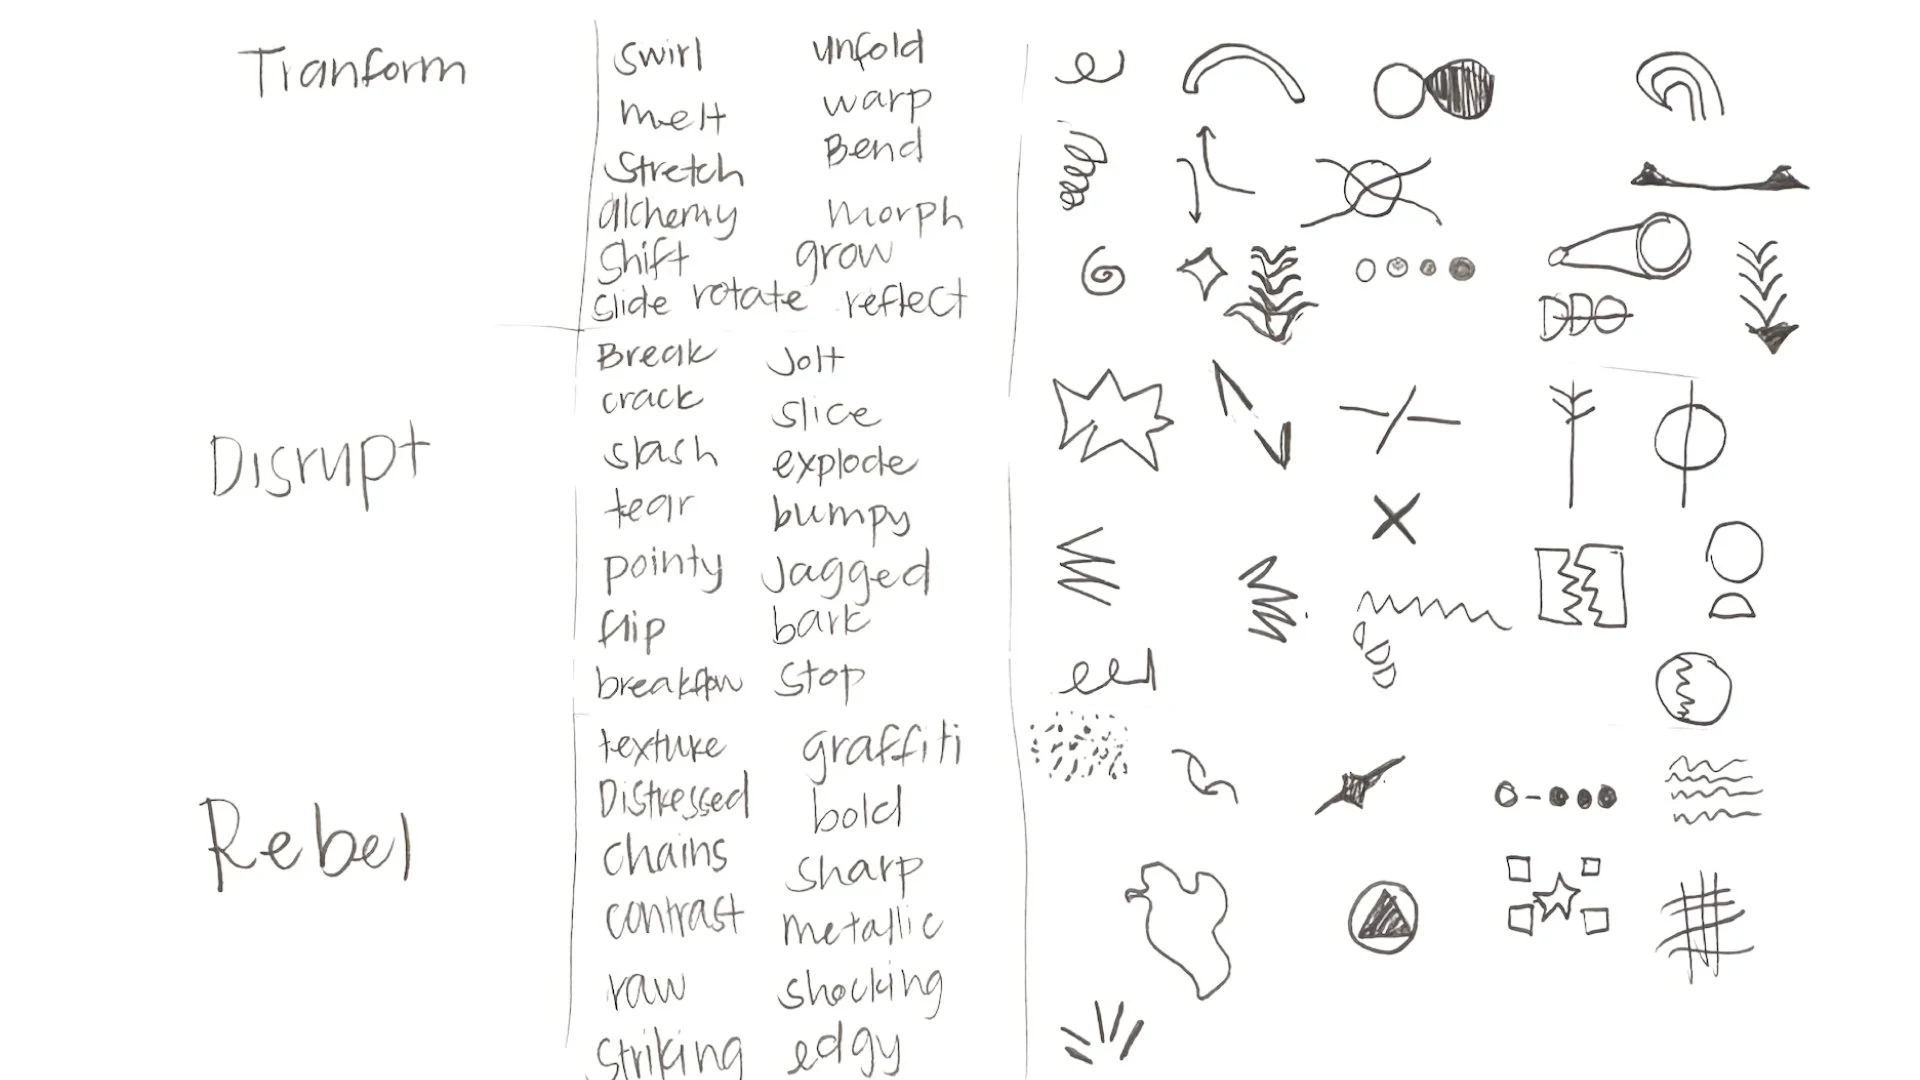 Tranform
swirl unfold
melt warp
Stretch Bend
alchemy morph
Shift grow
slide rotate reflect
Disrupt
Break Jolt
crack slice
slash explode
tear bumpy
pointy Jagged
flip bark
breakflow stop
Rebel
texture graffiti
Distressed bold
chains sharp
contrast metallic
raw shocking
striking edgy